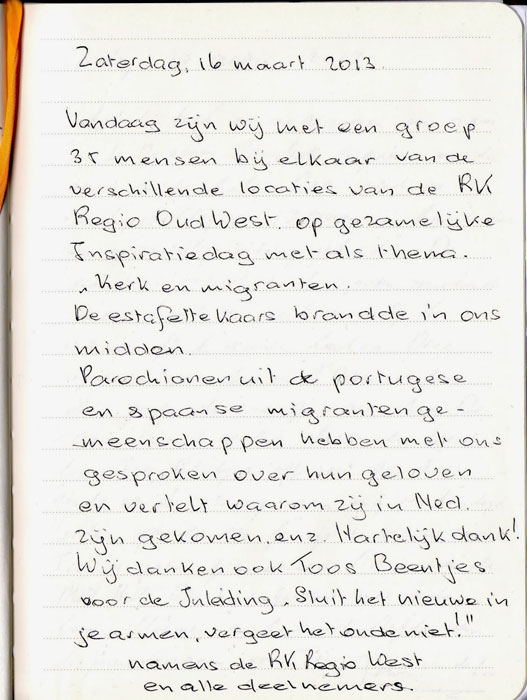 Zaterdag, 16 maart 2013.
Vandaag zijn wij met een groep
35 mensen bij elkaar van de
verschillende locaties van de RK
Regio Oud West. op gezamelijke
Inspiratiedag met als thema.
„ Kerk en migranten.
De estafette kaars brandde in ons
midden.
Parochionen uit de portugese
en spaanse migranten ge-
meenschappen hebben met ons
gesproken over hun geloven
en vertelt waarom zij in Ned.
zijn gekomen. enz. Hartelijk dank!
Wij danken ook Toos Beentjes
voor de Inleiding „Sluit het nieuwe in
je armen, vergeet het oude niet!"
namens de RK Regio West
en alle deelnemers.